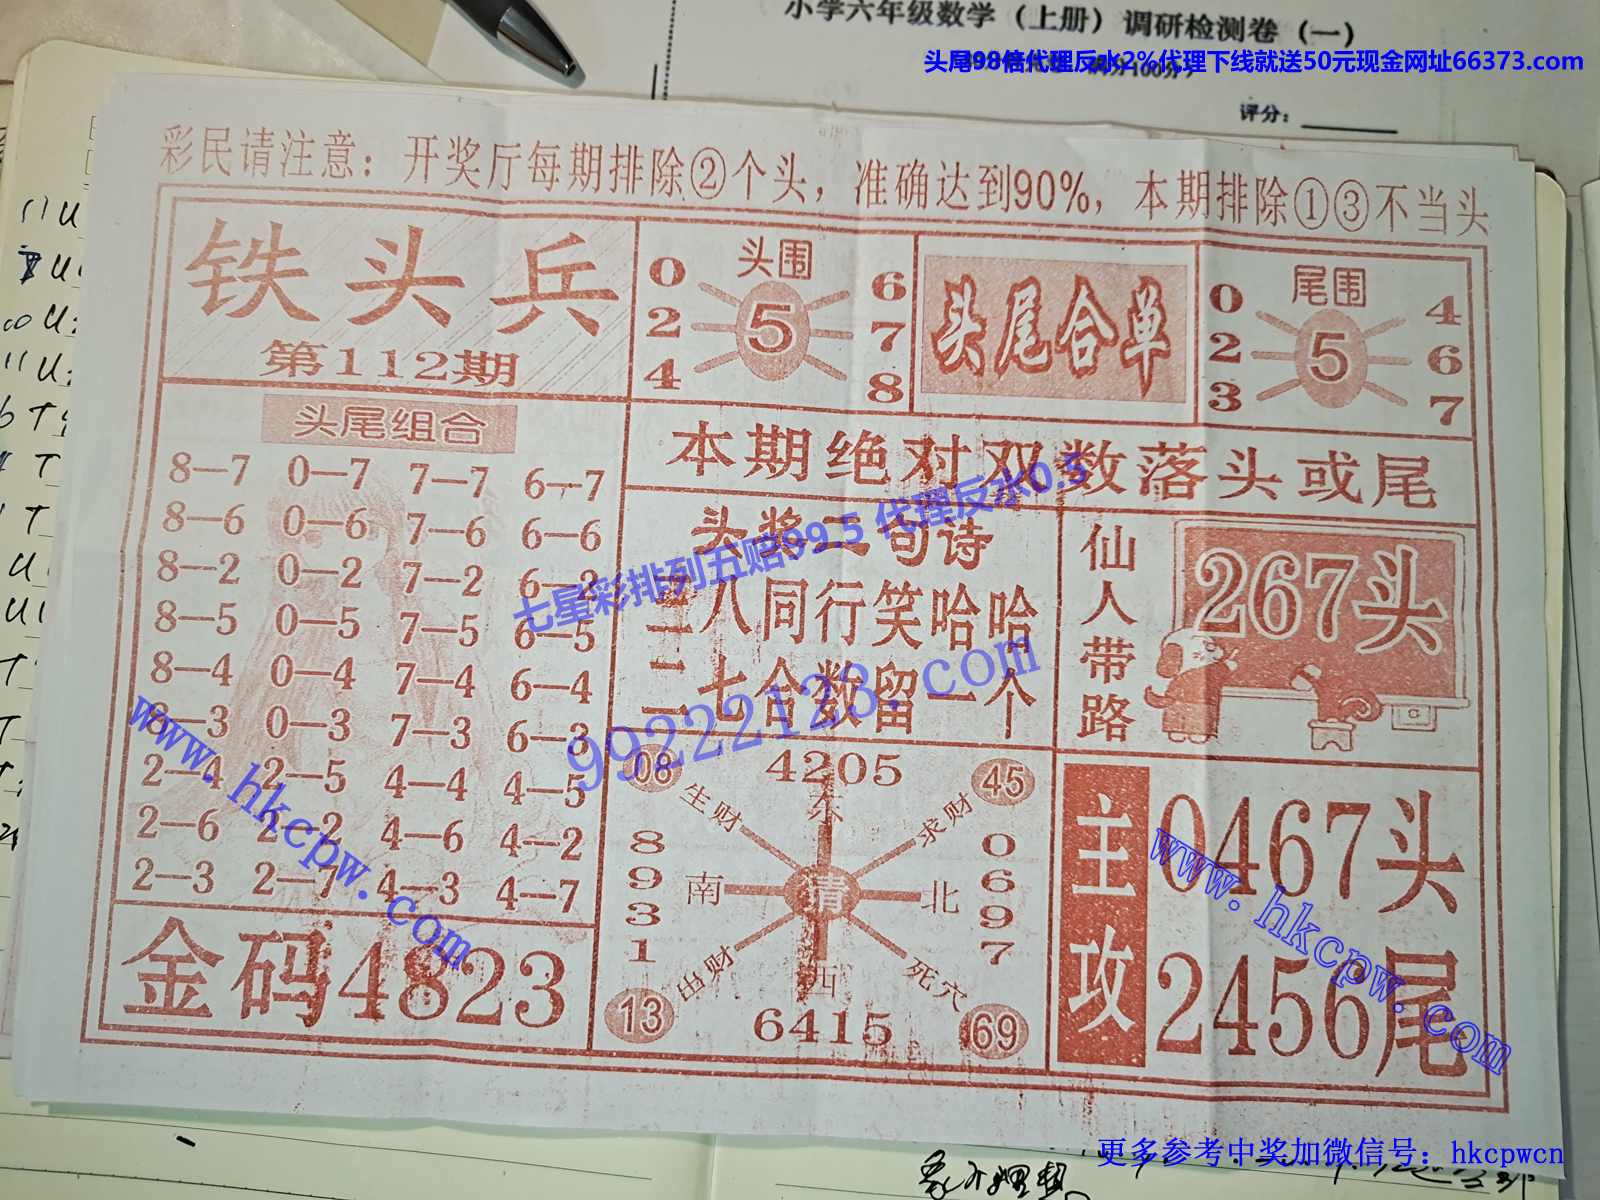 小学六年级数学（上册）调研检测卷（一）
头尾98倍代理反水2%代理下线就送50元现金网址66373.com
评分：
彩民请注意：开奖厅每期排除②个头，准确达到90%，本期排除①③不当头
铁头兵
第112期
头围
0 6
2 5 7
4 8
头尾合单
尾围
0 4
2 5 6
3 7
头尾组合
8—7 0—7 7—7 6—7
8—6 0—6 7—6 6—6
8—2 0—2 7—2 6—2
8—5 0—5 7—5 6—5
8—4 0—4 7—4 6—4
8—3 0—3 7—3 6—3
2—4 2—5 4—4 4—5
2—6 2—2 4—6 4—2
2—3 2—7 4—3 4—7
金码4823
本期绝对双数落头或尾
头奖二句诗
八同行笑哈哈
二七合数留一个
七星彩排列五赔99.5 代理反水0.5
99222123.com
仙人带路
267头
08 4205 45
生财 东 求财
8931 南 北 0697
出财 西 死穴
13 6415 69
主攻
0467头
2456尾
www.hkcpw.com
www.hkcpw.com
更多参考中奖加微信号：hkcpwcn